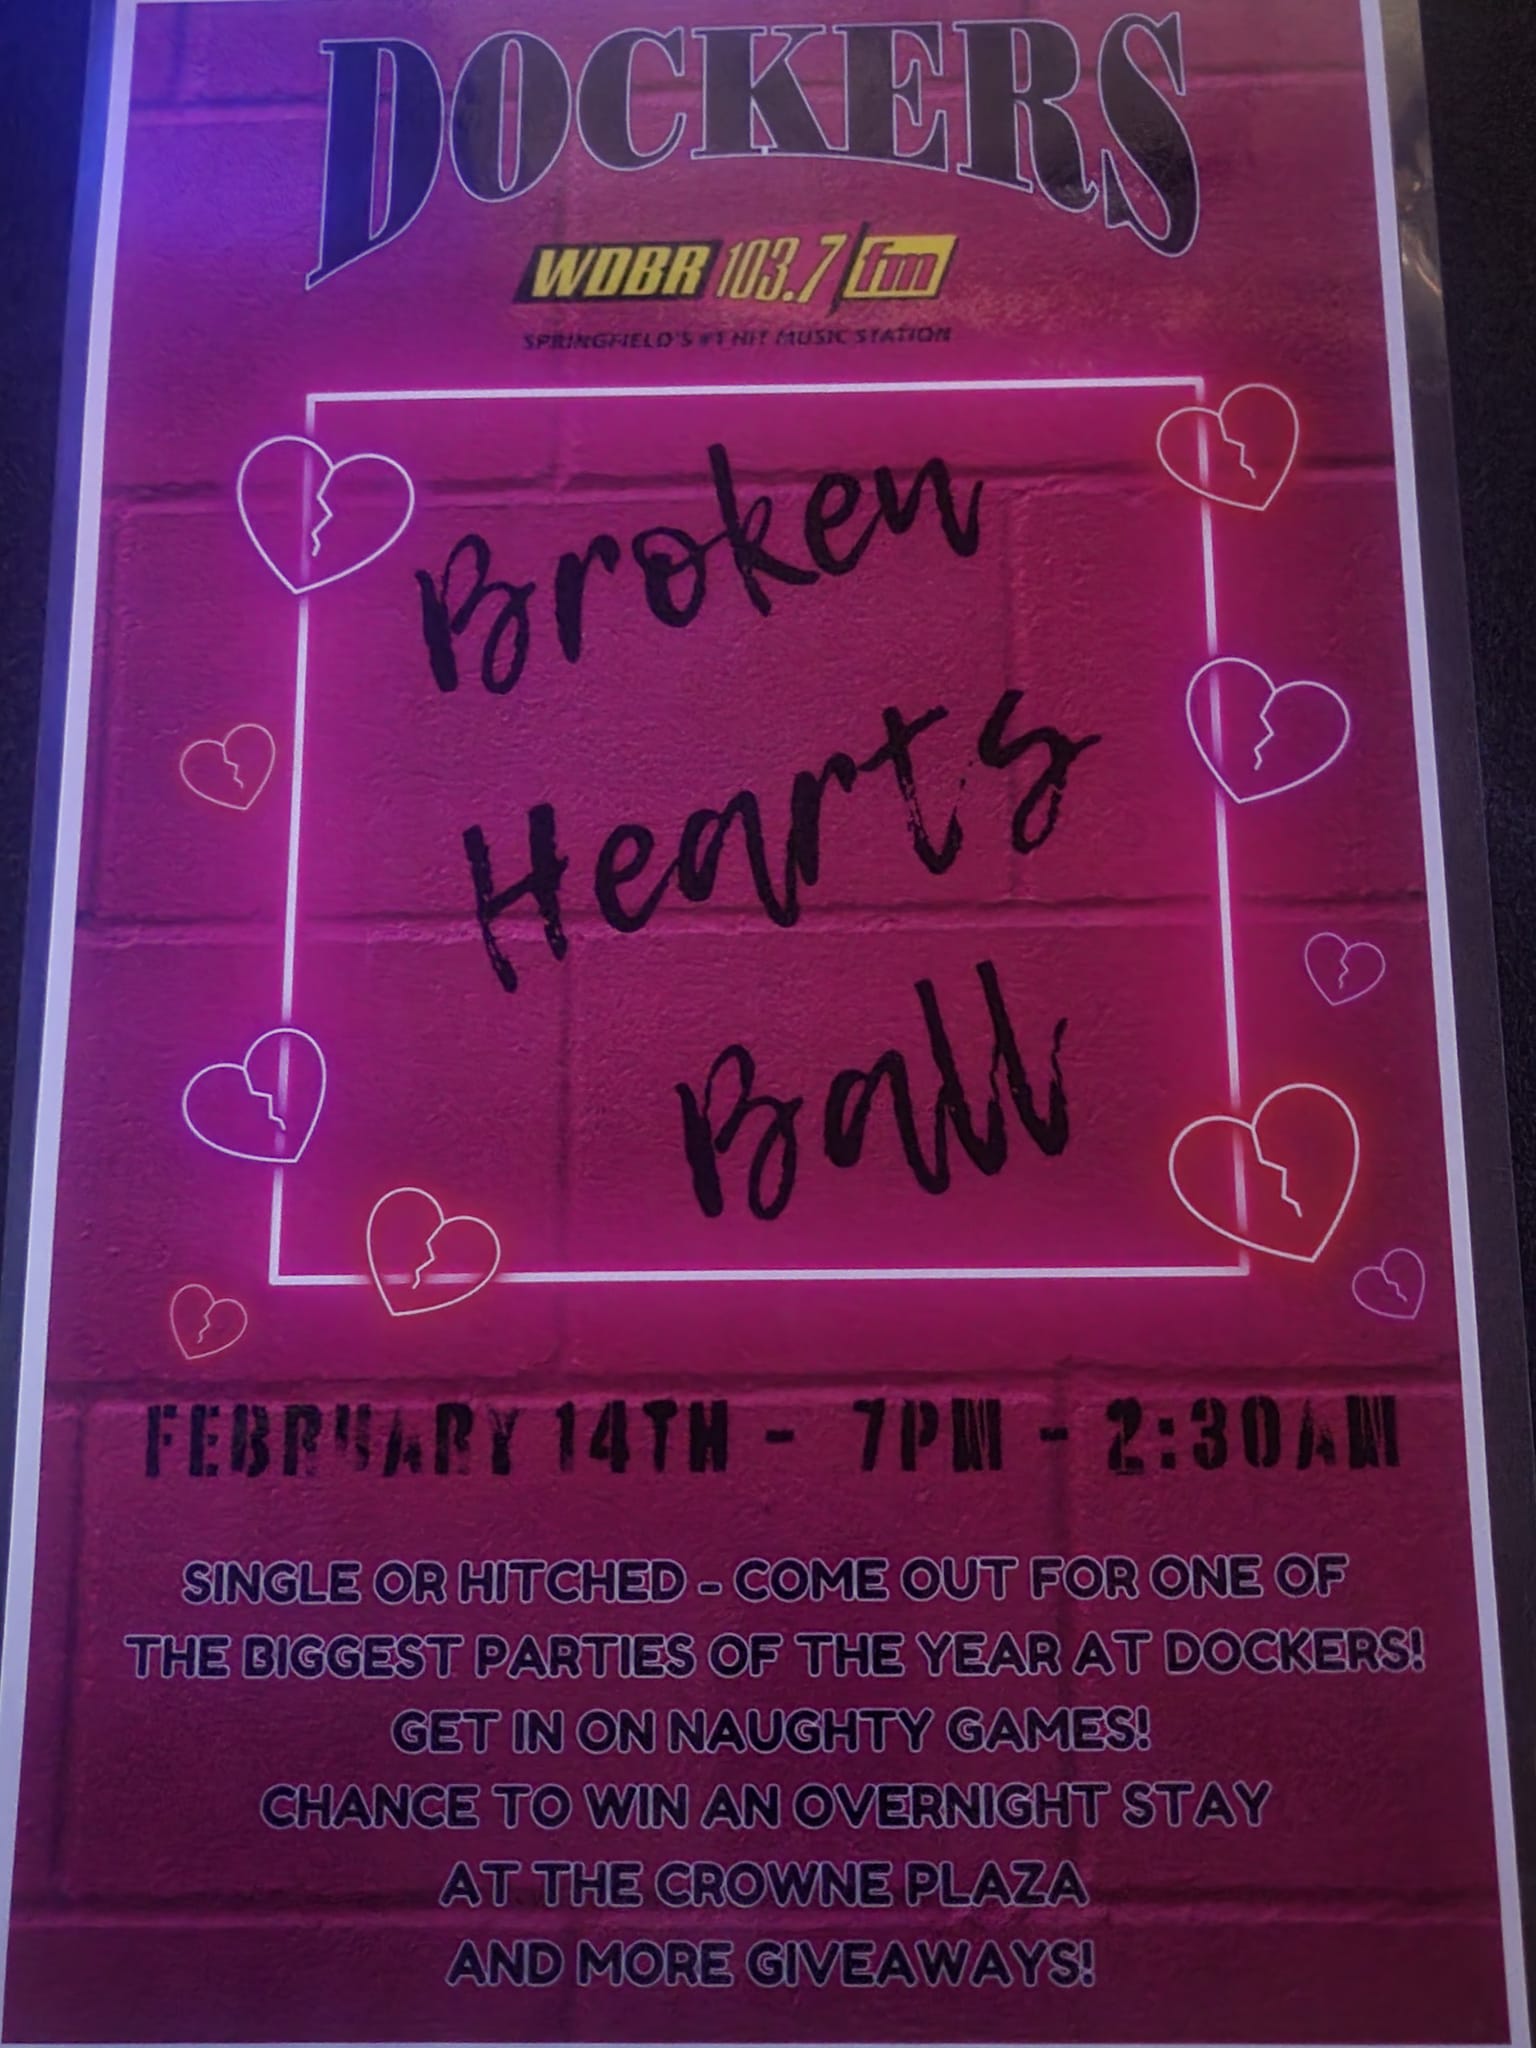 DOCKERS
WDBR 103.7 fm
SPRINGFIELD'S #1 HIT MUSIC STATION
Broken
Hearts
Ball
FEBRUARY 14TH - 7PM - 2:30AM
SINGLE OR HITCHED - COME OUT FOR ONE OF
THE BIGGEST PARTIES OF THE YEAR AT DOCKERS!
GET IN ON NAUGHTY GAMES!
CHANCE TO WIN AN OVERNIGHT STAY
AT THE CROWNE PLAZA
AND MORE GIVEAWAYS!